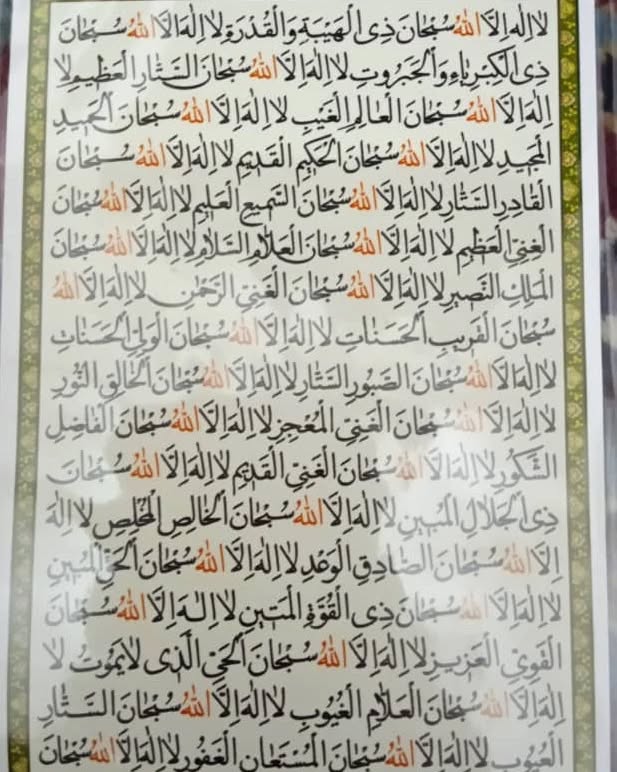 لَا اِلٰهَ اِلَّا اللهُ سُبْحَانَ ذِى الْهَيْبَةِ وَالْقُدْرَةِ لَا اِلٰهَ اِلَّا اللهُ سُبْحَانَ
ذِى الْكِبْرِيَاءِ وَالْجَبَرُوتِ لَا اِلٰهَ اِلَّا اللهُ سُبْحَانَ السَّتَّارِ الْعَظِيمِ لَا
اِلٰهَ اِلَّا اللهُ سُبْحَانَ الْعَالِمِ الْغَيْبِ لَا اِلٰهَ اِلَّا اللهُ سُبْحَانَ الْحَمِيدِ
الْمَجِيدِ لَا اِلٰهَ اِلَّا اللهُ سُبْحَانَ الْحَكِيمِ الْقَدِيمِ لَا اِلٰهَ اِلَّا اللهُ سُبْحَانَ
الْقَادِرِ السَّتَّارِ لَا اِلٰهَ اِلَّا اللهُ سُبْحَانَ السَّمِيعِ الْعَلِيمِ لَا اِلٰهَ اِلَّا اللهُ سُبْحَانَ
الْغَنِىِّ الْعَظِيمِ لَا اِلٰهَ اِلَّا اللهُ سُبْحَانَ الْعَلَّامِ السَّلَامِ لَا اِلٰهَ اِلَّا اللهُ سُبْحَانَ
الْمَلِكِ النَّصِيرِ لَا اِلٰهَ اِلَّا اللهُ سُبْحَانَ الْغَنِىِّ الرَّحْمٰنِ لَا اِلٰهَ اِلَّا اللهُ
سُبْحَانَ الْقَرِيبِ الْحَسَنَاتِ لَا اِلٰهَ اِلَّا اللهُ سُبْحَانَ الْوَلِىِّ الْحَسَنَاتِ
لَا اِلٰهَ اِلَّا اللهُ سُبْحَانَ الصَّبُورِ السَّتَّارِ لَا اِلٰهَ اِلَّا اللهُ سُبْحَانَ الْخَالِقِ النُّورِ
لَا اِلٰهَ اِلَّا اللهُ سُبْحَانَ الْغَنِىِّ الْمُعْجِزِ لَا اِلٰهَ اِلَّا اللهُ سُبْحَانَ الْفَاضِلِ
الشَّكُورِ لَا اِلٰهَ اِلَّا اللهُ سُبْحَانَ الْغَنِىِّ الْقَدِيمِ لَا اِلٰهَ اِلَّا اللهُ سُبْحَانَ
ذِى الْجَلَالِ الْمُبِينِ لَا اِلٰهَ اِلَّا اللهُ سُبْحَانَ الْخَالِصِ الْمُخْلِصِ لَا اِلٰهَ
اِلَّا اللهُ سُبْحَانَ الصَّادِقِ الْوَعْدِ لَا اِلٰهَ اِلَّا اللهُ سُبْحَانَ الْحَقِّ الْمُبِينِ
لَا اِلٰهَ اِلَّا اللهُ سُبْحَانَ ذِى الْقُوَّةِ الْمَتِينِ لَا اِلٰهَ اِلَّا اللهُ سُبْحَانَ
الْقَوِىِّ الْعَزِيزِ لَا اِلٰهَ اِلَّا اللهُ سُبْحَانَ الْحَىِّ الَّذِى لَا يَمُوتُ لَا
اِلٰهَ اِلَّا اللهُ سُبْحَانَ الْعَلَّامِ الْغُيُوبِ لَا اِلٰهَ اِلَّا اللهُ سُبْحَانَ السَّتَّارِ
الْعُيُوبِ لَا اِلٰهَ اِلَّا اللهُ سُبْحَانَ الْمُسْتَعَانِ الْغَفُورِ لَا اِلٰهَ اِلَّا اللهُ سُبْحَانَ